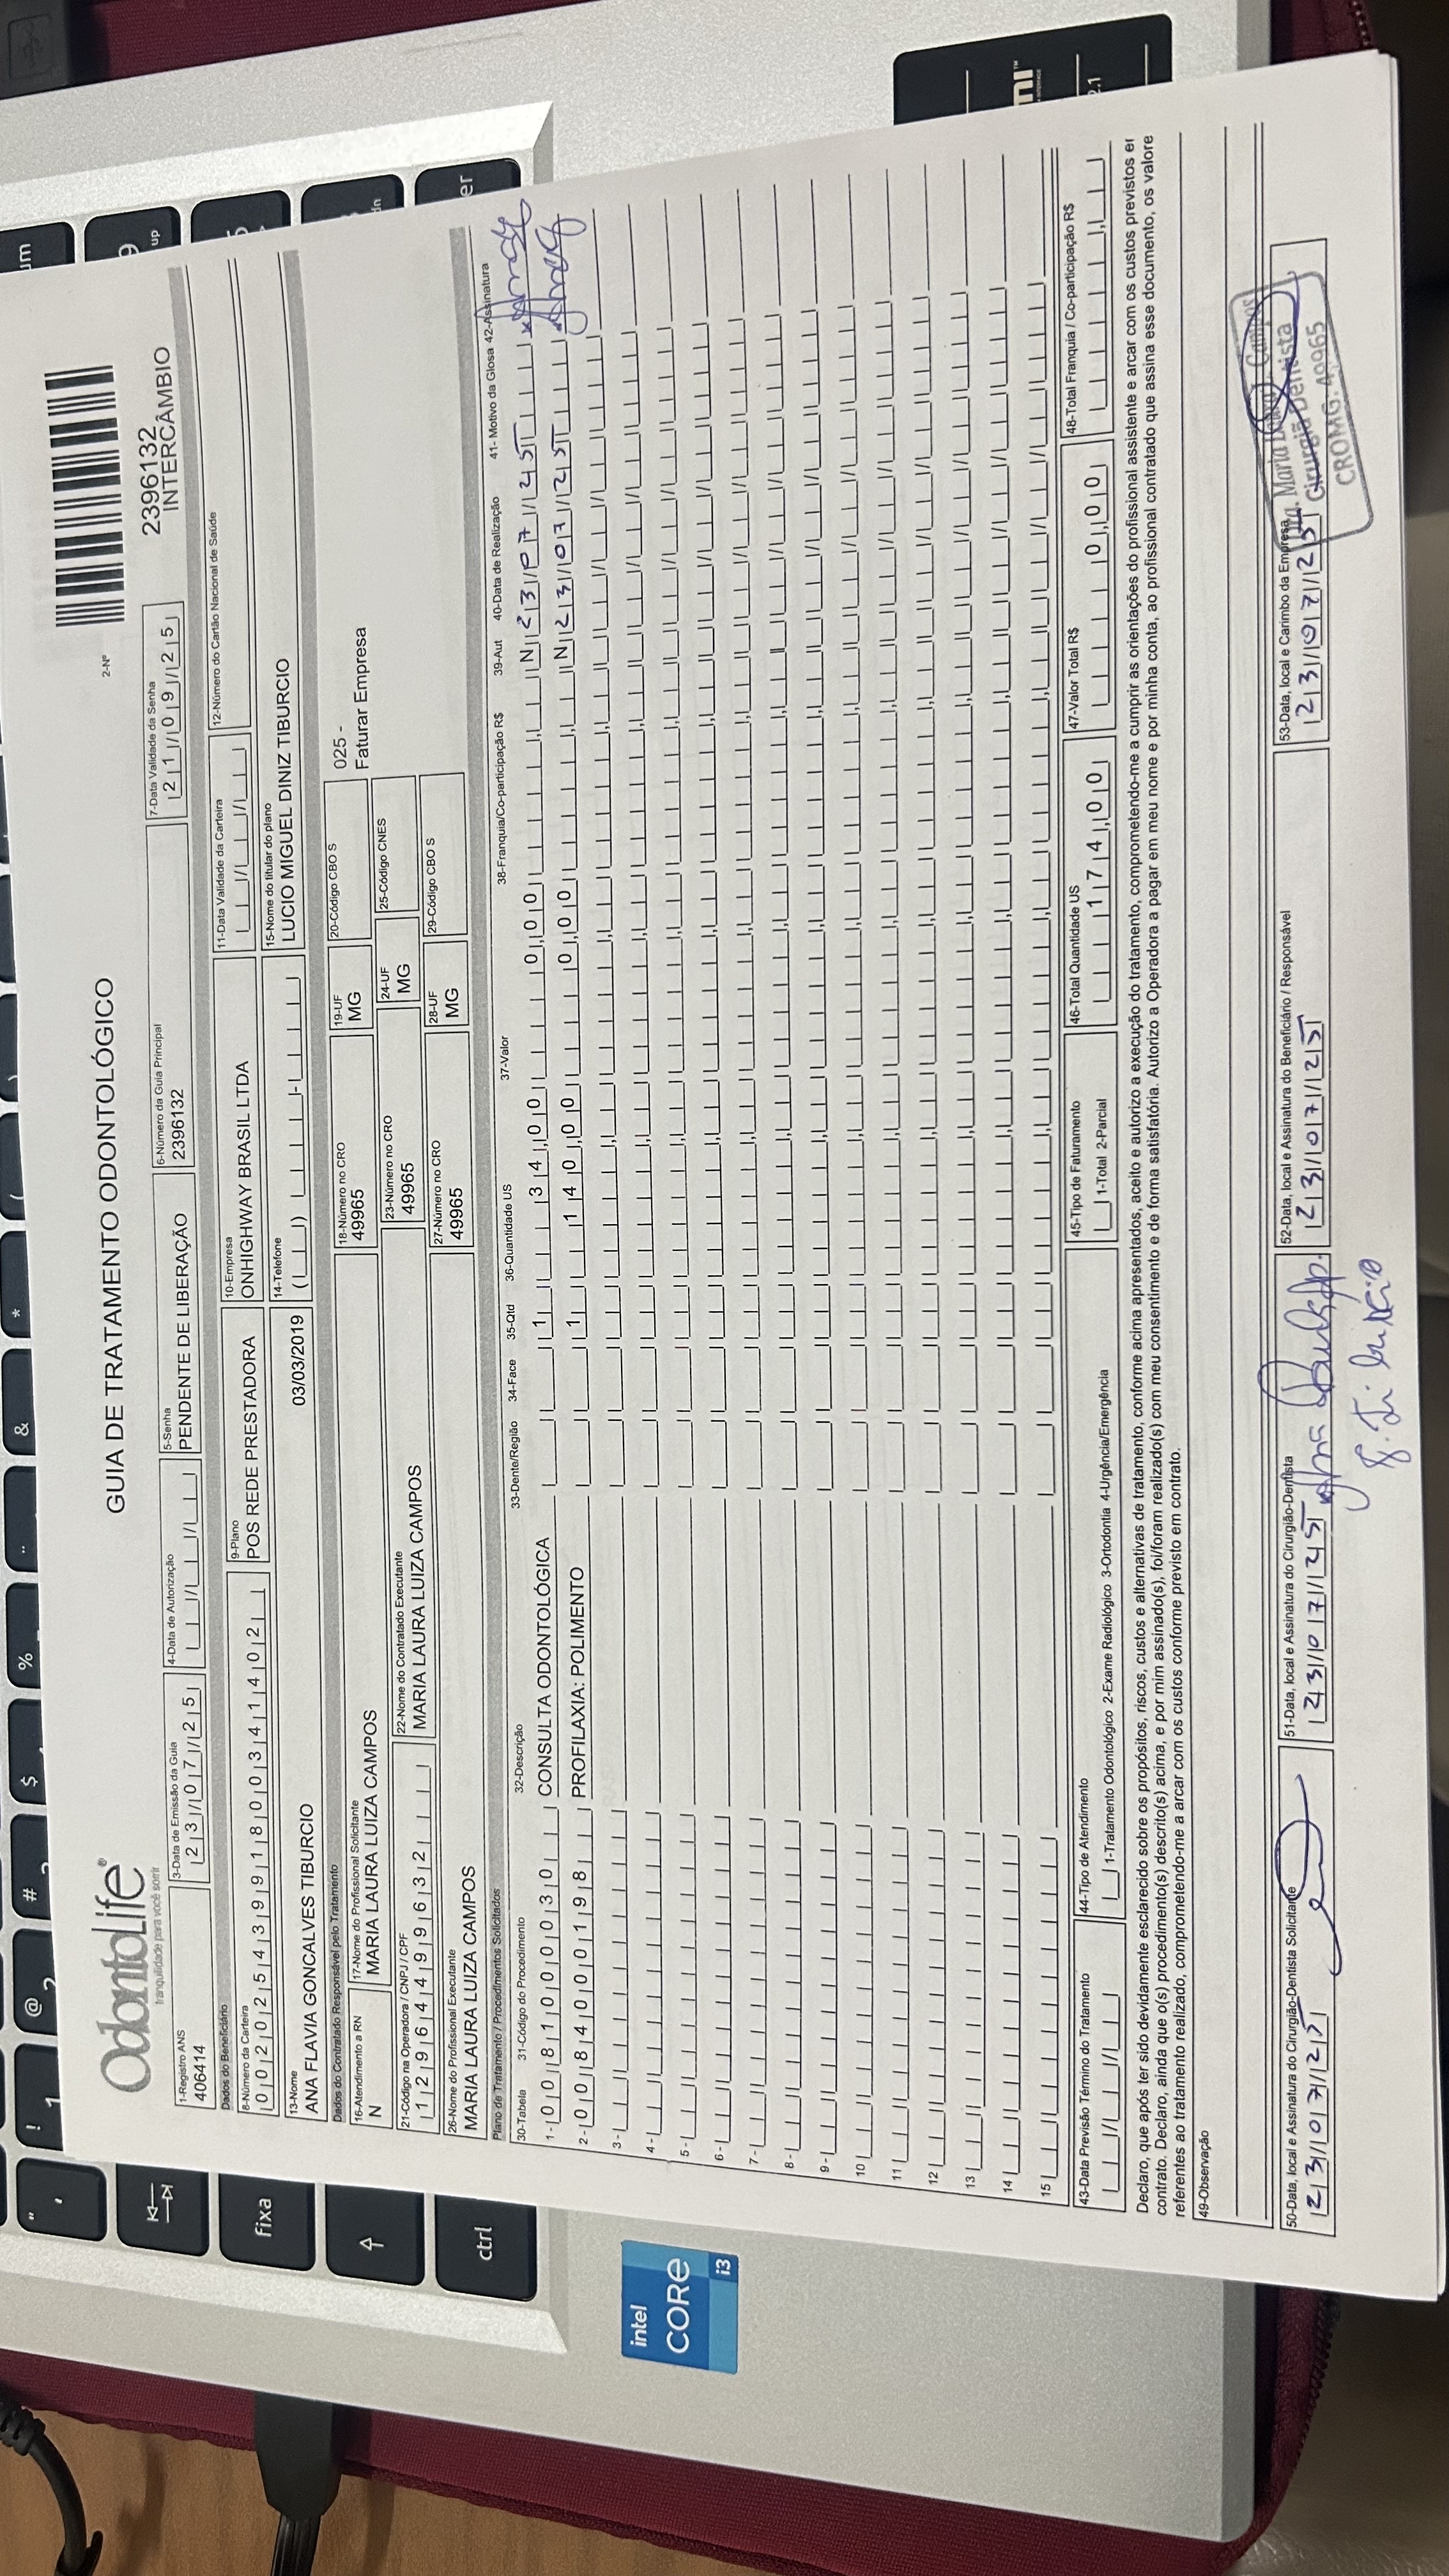 OdontoLife®
tranquilidade para você sorrir
GUIA DE TRATAMENTO ODONTOLÓGICO
2-Nº
2396132
INTERCÂMBIO
1-Registro ANS
406414
3-Data de Emissão da Guia
23/07/25
4-Data de Autorização
5-Senha
PENDENTE DE LIBERAÇÃO
6-Número da Guia Principal
2396132
7-Data Validade da Senha
21/09/25
Dados do Beneficiário
8-Número da Carteira
00202543991800341402
9-Plano
POS REDE PRESTADORA
10-Empresa
ONHIGHWAY BRASIL LTDA
11-Data Validade da Carteira
12-Número do Cartão Nacional de Saúde
13-Nome
ANA FLAVIA GONCALVES TIBURCIO
03/03/2019
14-Telefone
15-Nome do titular do plano
LUCIO MIGUEL DINIZ TIBURCIO
Dados do Contratado Responsável pelo Tratamento
16-Atendimento a RN
N
17-Nome do Profissional Solicitante
MARIA LAURA LUIZA CAMPOS
18-Número no CRO
49965
19-UF
MG
20-Código CBO S
025 -
Faturar Empresa
21-Código na Operadora / CNPJ / CPF
12964499632
22-Nome do Contratado Executante
MARIA LAURA LUIZA CAMPOS
23-Número no CRO
49965
24-UF
MG
25-Código CNES
26-Nome do Profissional Executante
MARIA LAURA LUIZA CAMPOS
27-Número no CRO
49965
28-UF
MG
29-Código CBO S
Plano de Tratamento / Procedimentos Solicitados
30-Tabela 31-Código do Procedimento 32-Descrição 33-Dente/Região 34-Face 35-Qtd 36-Quantidade US 37-Valor 38-Franquia/Co-participação R$ 39-Aut 40-Data de Realização 41- Motivo da Glosa 42-Assinatura
1 - 00 81000030 CONSULTA ODONTOLÓGICA 1 34,00 0,00 N 23/07/25
2 - 00 84000198 PROFILAXIA: POLIMENTO 1 140,00 0,00 N 23/07/25
3 -
4 -
5 -
6 -
7 -
8 -
9 -
10
11
12
13
14
15
43-Data Previsão Término do Tratamento
44-Tipo de Atendimento
1-Tratamento Odontológico 2-Exame Radiológico 3-Ortodontia 4-Urgência/Emergência
45-Tipo de Faturamento
1-Total 2-Parcial
46-Total Quantidade US
174,00
47-Valor Total R$
0,00
48-Total Franquia / Co-participação R$
Declaro, que após ter sido devidamente esclarecido sobre os propósitos, riscos, custos e alternativas de tratamento, conforme acima apresentados, aceito e autorizo a execução do tratamento, comprometendo-me a cumprir as orientações do profissional assistente e arcar com os custos previstos er
contrato. Declaro, ainda que o(s) procedimento(s) descrito(s) acima, e por mim assinado(s), foi/foram realizado(s) com meu consentimento e de forma satisfatória. Autorizo a Operadora a pagar em meu nome e por minha conta, ao profissional contratado que assina esse documento, os valore
referentes ao tratamento realizado, comprometendo-me a arcar com os custos conforme previsto em contrato.
49-Observação
50-Data, local e Assinatura do Cirurgião-Dentista Solicitante
23/07/25
51-Data, local e Assinatura do Cirurgião-Dentista
23/07/25
52-Data, local e Assinatura do Beneficiário / Responsável
23/07/25
53-Data, local e Carimbo da Empresa
23/07/25
Maria Laura L. Campos
Cirurgiã Dentista
CROMG: 49965
fixa
ctrl
intel
CORE
i3